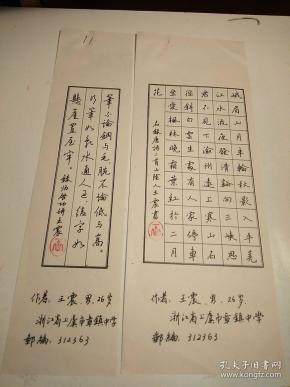 筆不论鋼与毛,腕不论低与高。
行筆如乱水通人过,结字如
悬崖置屋牢。录启功诗王震
作者:王震 男 26岁
浙江省上虞市章镇中学
邮编:312363
峨眉山月半轮秋影入平羌
江水流夜发清溪向三峡思
君不见下渝州远上寒山石
径斜白云生处有人家停车
坐爱枫林晚霜叶红於二月
花
右录唐诗二首山阴人王震書
作者:王震 男 26岁
浙江省上虞市章镇中学
邮编:312363
孔夫子旧书网